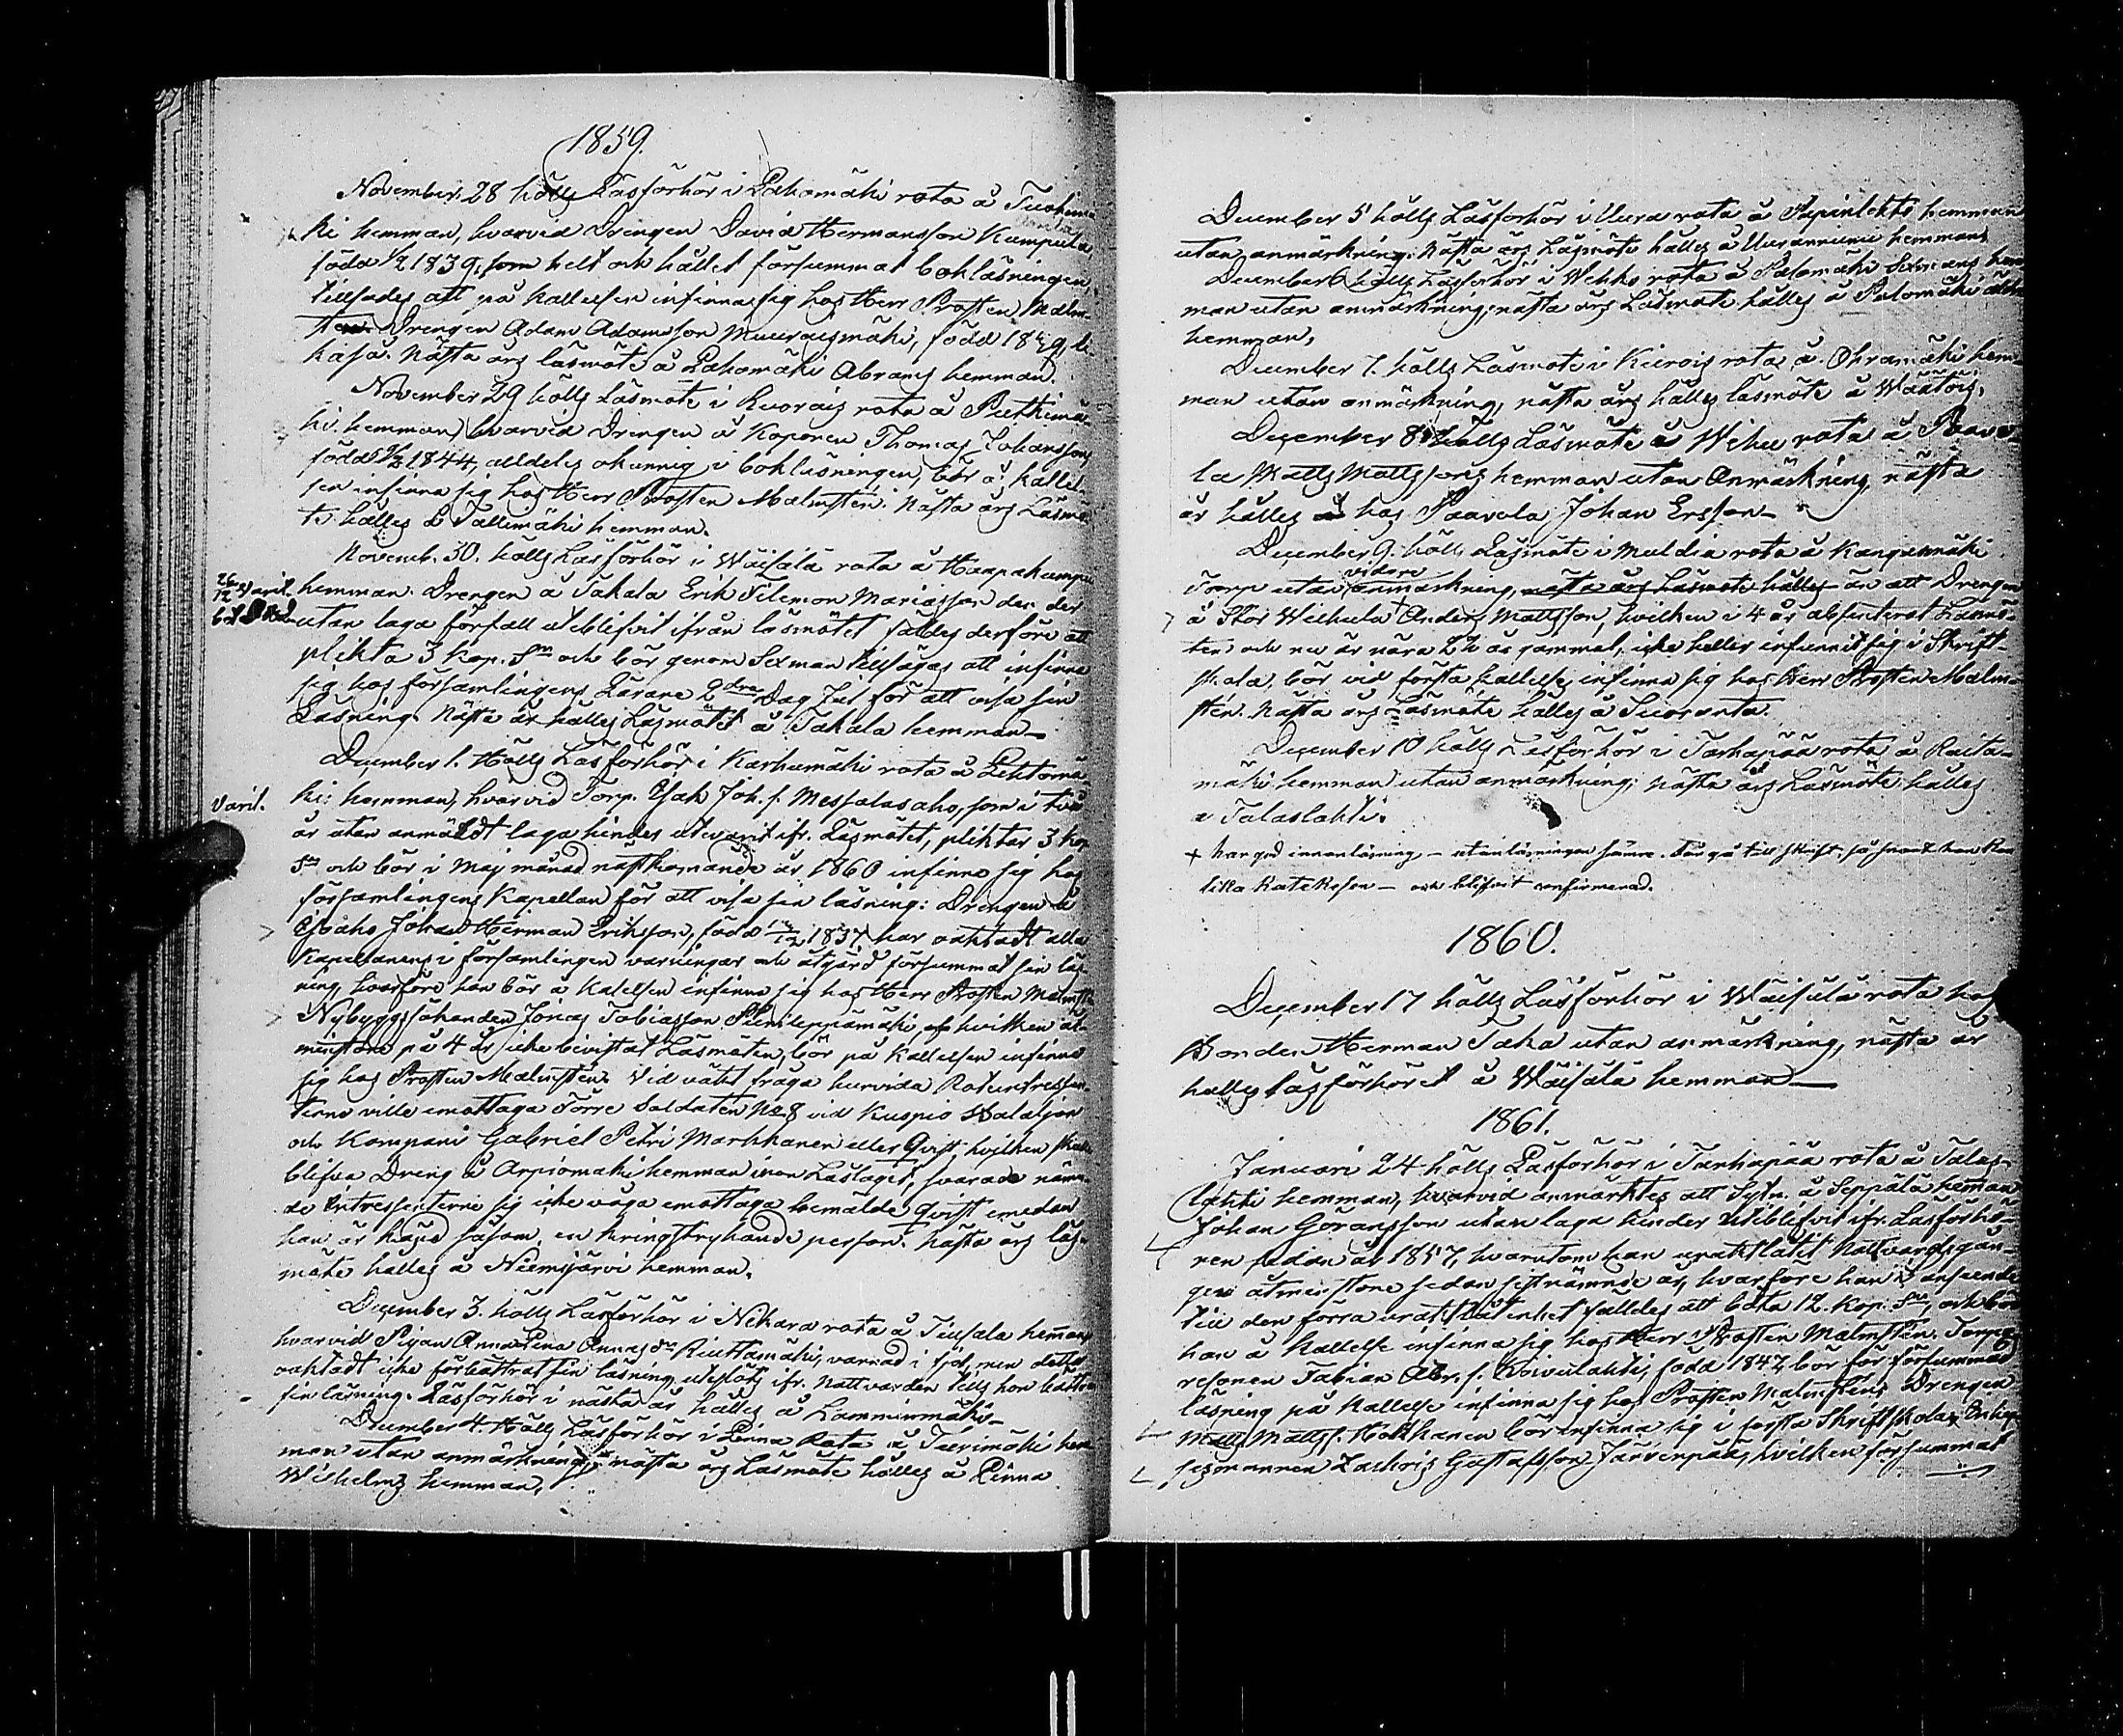 1859.
November 28 hölls Läsförhör i Pohomäki rota å Tuohimä
ki hemman, hvarvid Drengen David Hermansson Kumpula,
född ½ 1839, som helt och hållet försummat bokläsningen,
tillsades att på kallelsen infinna sig hos Herr Prosten Malm-
sten. Drengen Adam Adamsson Muuraismäki, född 1829, li-
kaså. Nästa års läsmöte å Pohomäki Abrams hemman.
November 29 hölls Läsmöte i rota å Peethimä-
ki hemman, hvarvid Drengen å Koponen Thomas Johansson,
född 1844, alldeles okunnig i bokläsningen, bör å kallel-
sen infinna sig hos Herr Prosten Malmsten. Nästa års Läsmö-
te hålles å Tallimäki hemman.
Novemb. 30. hölls Läsförhör i Wäisälä rota å Haapakumpu
26/12 varit hemman. Drengen å Takala Erik Filemon Mariasson den der
utan laga förfall uteblifvit ifrån läsmötet fäldes derföre att
plikta 3 kop. Sr och bör genom Sexman tillsägas att infinna
sig hos församlingens Lärare 2dra Dag Jul för att visa sin
Läsning. Nästa år hålles Läsmötet å Takala hemman.
December 1. Hölls Läsförhör i Karhumäki rota å Lehtomä
varit. ki hemman, hvarvid Torp. Isak Joh. s. Messalasaho, som i två
år utan anmäldt laga hinder utevarit ifr. Läsmötet, pliktar 3 kop
Sr och bör i Maj månad nästkommande år 1860 infinna sig hos
församlingens Kapellan för att visa sin läsning: Drengen å
Isoaho Johan Herman Eriksson, född 1837 har oaktadt alla
Kapellanens i församlingen varningar och åtgärd försummat sin läs-
ning, hvarföre han bör å kallelsen infinna sig hos Herr Prosten Malmsten
Nybyggssåhanden Jonas Tobiasson hvilken åt-
minstone på 4 år icke bivistat Läsmöten, bör på kallelsen infinna
sig hos Prosten Malmsten. Vid väkt fråga huruvida Rotintressen-
terne ville emottaga Förre Soldaten No 8 vid Kuopio Bataljon
och Kompani Gabriel Petri Markkanen eller Qvist, hvilken skulle
blifva Dreng å Arpiomäki hemman inom Läslaget, svarade nämn-
de Intressenterne sig icke våga emottaga bemälde Qvist emedan
han är känd såsom en kringstrykande person. Nästa års läs-
möte hålles å Niemijärvi hemman.
December 3. hölls Läsförhör i Nekara rota å Tiusala hemman
hvarvid Pigan Anna Lena Annasdr Riuttamäki, varnad i fjol, men detta
oaktadt icke förbättrat sin läsning, uteslöts ifr. Nattvarden tills hon bättrar
sin läsning. Läsförhör i nästa år hålles å Lamminmäki.
December 4. Hölls Läsförhör i Linna Rota å Tuerimäki hem-
man utan anmärkning; nästa års Läsmöte hålles å Linna
Wilhelms hemman.
December 5 hölls Läsförhör i Uura rota å Sepinlehto hemman
utan anmärkning. Nästa års Läsmöte hålles å Uuranniemi hemman
December 6 hölls Läsförhör i Wehko rota å Palomäki Sexmans hem-
man utan anmärkning; nästa års Läsmöte hålles å Palomäki
hemman.
December 7. hölls Läsmöte i Kierois rota å Ohramäki hem-
man utan anmärkning, nästa års hålles läsmöte å Wäätöis.
December 8 hölls Läsmöte å Wehu rota å Paavo-
la Matts Mattssons hemman utan Anmärkning, nästa
år hålles å hos Paavola Johan Ersson.
December 9. hölls Läsmöte i Muldia rota å Kangasmäki
Torp utan vidare anmärkning nästa års Läsmöte hålles än att Drengen
å Stor Weihula + Anders Mattsson, hvilken i 4 år absenterat Läsmö-
ten och nu är nära 22 år gammal, icke heller infunnit sig i Skrift-
skola, bör vid första kallelse infinna sig hos Herr Prosten Malm-
sten. Nästa års Läsmöte hålles å Suoranta.
December 10 hölls Läsförhör i Tarhapää rota å Raita-
mäki hemman utan anmärkning; nästa års Läsmöte hålles
å Talaslahti.
+ har god innanläsning, – utanläsningen sämre. Får gå till skrift. så snart han kan
lilla katekesen – och blifvit confirmerad.
1860.
December 17 hölls Läsförhör i Wäisälä rota hos
Bonden Herman Taka utan anmärkning, nästa år
hålles läsförhöret å Wäisälä hemman
1861.
Januari 24 hölls Läsförhör i Tarhapää rota å Talas-
lahti hemman, hvarvid anmärktes att Sytn. å Seppälä hemman
Johan Göransson utan laga hinder uteblifvit ifr. Läsförhö-
ren sedan år 1857, hvarutom han uraktlåtit Nattvardsgån-
gen åtminstone sedan sistnämnde år, hvarföre han i anseende
till den förra uraktlåtenhet fälldes att böta 12. kop. Sr, och bör
han å kallelse infinna sig hos Herr Prosten Malmsten. Torpa-
resonen Fabian Abr. s. född 1842 bör för försummad
läsning på kallelse infinna sig hos Prosten Malmsten; Drengen
Matts Matts s. Hokkanen bör infinna sig i första Skriftskola; Enke-
sexmannen Zachris Gustafsson Järvenpää, hvilken försummat